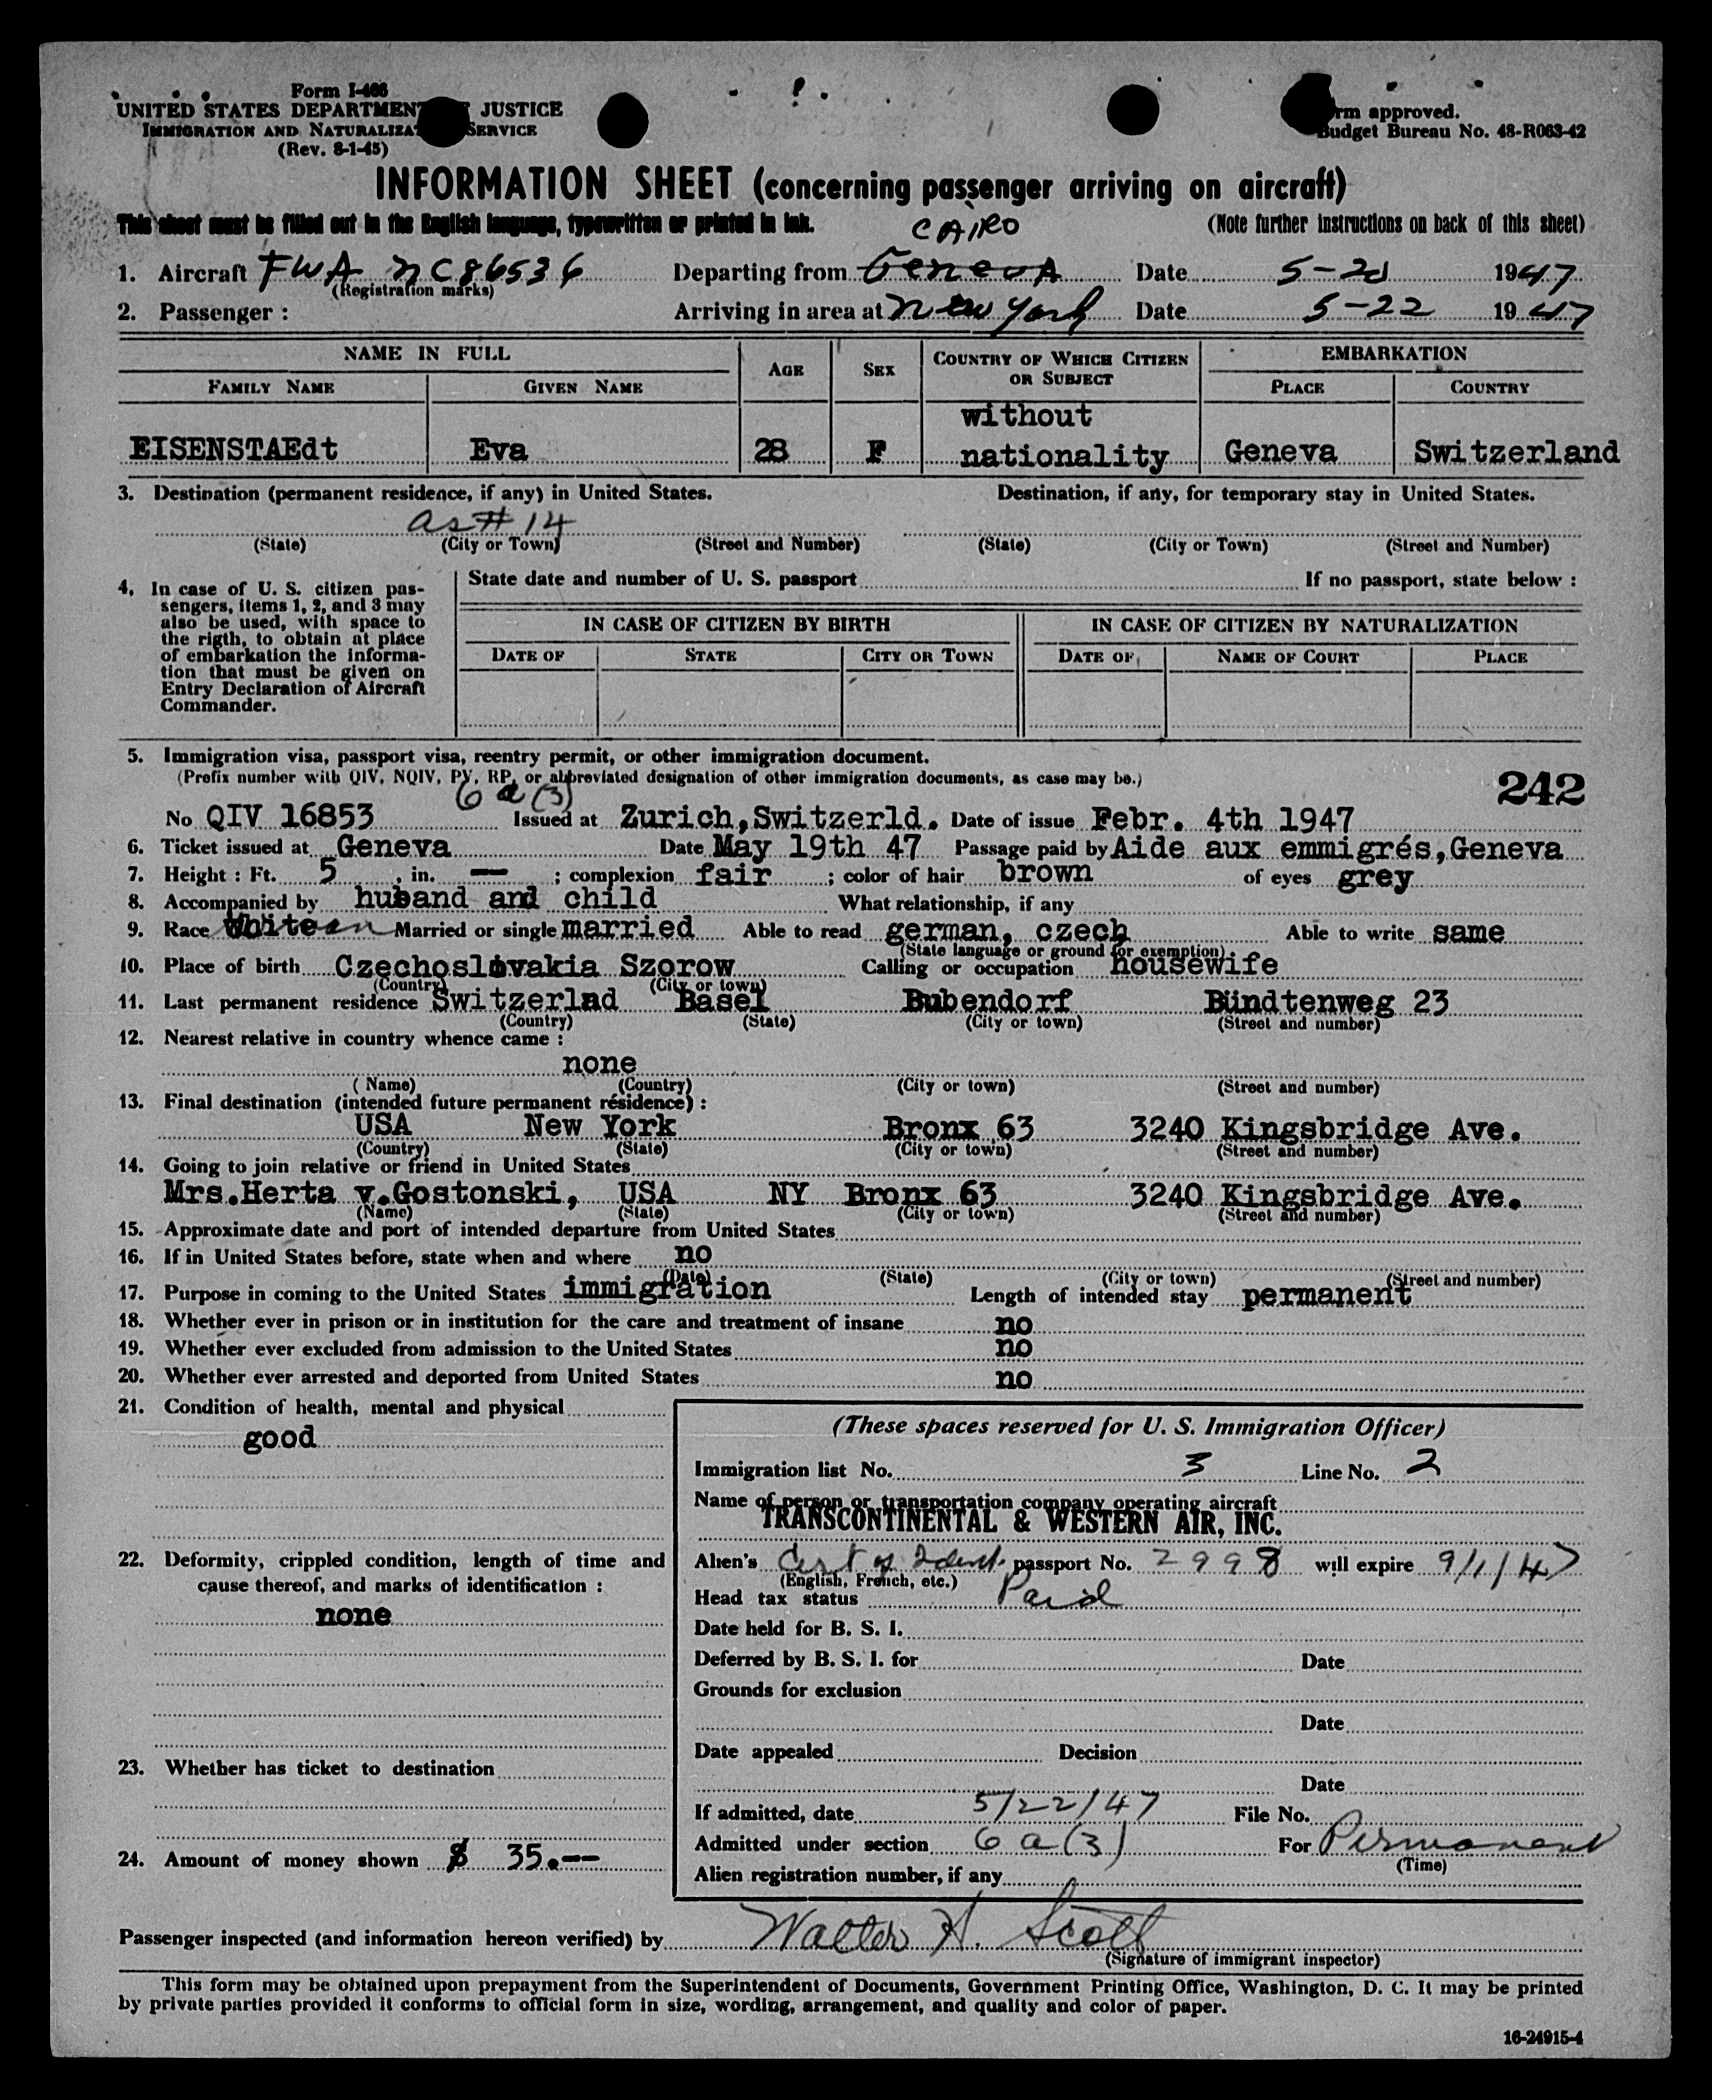 Form I-466
UNITED STATES DEPARTMENT JUSTICE
IMMIGRATION AND NATURALIZA SERVICE
(Rev. 8-1-45)
rm approved.
Budget Bureau No. 48-R063-42
INFORMATION SHEET (concerning passenger arriving on aircraft)
This sheet must be filled out in the English language, typewritten or printed in ink.
(Note further instructions on back of this sheet)
CAIRO
1. Aircraft TWA NC86536 Departing from Geneva Date 5-20 1947
(Registration marks)
2. Passenger : Arriving in area at New York Date 5-22 1947
NAME IN FULL AGE SEX COUNTRY OF WHICH CITIZEN OR SUBJECT EMBARKATION
FAMILY NAME GIVEN NAME PLACE COUNTRY
without
EISENSTAEdt Eva 28 F nationality Geneva Switzerland
3. Destination (permanent residence, if any) in United States. Destination, if any, for temporary stay in United States.
as # 14
(State) (City or Town) (Street and Number) (State) (City or Town) (Street and Number)
4. In case of U. S. citizen pas-
sengers, items 1, 2, and 3 may
also be used, with space to
the rigth, to obtain at place
of embarkation the informa-
tion that must be given on
Entry Declaration of Aircraft
Commander.
State date and number of U. S. passport If no passport, state below :
IN CASE OF CITIZEN BY BIRTH IN CASE OF CITIZEN BY NATURALIZATION
DATE OF STATE CITY OR TOWN DATE OF NAME OF COURT PLACE
5. Immigration visa, passport visa, reentry permit, or other immigration document.
(Prefix number with QIV, NQIV, PV, RP, or abbreviated designation of other immigration documents, as case may be.)
242
6 a (3)
No QIV 16853 Issued at Zurich,Switzerld. Date of issue Febr. 4th 1947
6. Ticket issued at Geneva Date May 19th 47 Passage paid by Aide aux emmigrés,Geneva
7. Height : Ft. 5 , in. -- ; complexion fair ; color of hair brown of eyes grey
8. Accompanied by husband and child What relationship, if any
9. Race White Married or single married Able to read german, czech Able to write same
(State language or ground for exemption)
10. Place of birth Czechoslovakia Szorow Calling or occupation housewife
(Country) (City or town)
11. Last permanent residence Switzerlnd Basel Bubendorf Bündtenweg 23
(Country) (State) (City or town) (Street and number)
12. Nearest relative in country whence came :
none
(Name) (Country) (City or town) (Street and number)
13. Final destination (intended future permanent résidence) :
USA New York Bronx 63 3240 Kingsbridge Ave.
(Country) (State) (City or town) (Street and number)
14. Going to join relative or friend in United States
Mrs.Herta v.Gostonski, USA NY Bronx 63 3240 Kingsbridge Ave.
(Name) (State) (City or town) (Street and number)
15. Approximate date and port of intended departure from United States
16. If in United States before, state when and where no
(Date) (State) (City or town) (Street and number)
17. Purpose in coming to the United States immigration Length of intended stay permanent
18. Whether ever in prison or in institution for the care and treatment of insane no
19. Whether ever excluded from admission to the United States no
20. Whether ever arrested and deported from United States no
21. Condition of health, mental and physical
good
22. Deformity, crippled condition, length of time and
cause thereof, and marks of identification :
none
23. Whether has ticket to destination
24. Amount of money shown $ 35.--
(These spaces reserved for U. S. Immigration Officer)
Immigration list No. 3 Line No. 2
Name of person or transportation company operating aircraft
TRANSCONTINENTAL & WESTERN AIR, INC.
Alien's Cert of Ident. passport No. 2998 will expire 9/1/47
(English, French, etc.)
Head tax status Paid
Date held for B. S. I.
Deferred by B. S. I. for Date
Grounds for exclusion
Date
Date appealed Decision
Date
If admitted, date 5/22/47 File No.
Admitted under section 6 a (3) For Permanent
(Time)
Alien registration number, if any
Passenger inspected (and information hereon verified) by Walter H. Scott
(Signature of immigrant inspector)
This form may be obtained upon prepayment from the Superintendent of Documents, Government Printing Office, Washington, D. C. It may be printed
by private parties provided it conforms to official form in size, wording, arrangement, and quality and color of paper.
16-24915-4